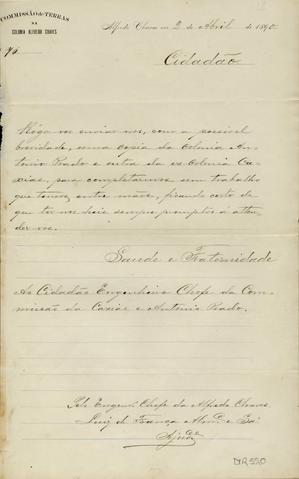 COMMISSÃO DE TERRAS
DA
COLONIA ALFREDO CHAVES
Alfredo Chaves em 2 de Abril de 1890
Nº 95
Cidadão
Rógo vos enviar-nos, com a possivel
brevidade, uma copia da Colonia An-
tonio Prado e outra da ex-Colonia Ca-
xias, para completarmos um trabalho
que temos, entre mãos, ficando certo de
que ter-nos-heis sempre promptos á atten-
der-vos.
Saude e Fraternidade
Ao Cidadão Engenheiro Chefe da Com-
missão de Caxias e Antonio Prado.
Pelo Engenrº Chefe da Alfredo Chaves
Luiz de França Almda e Sá
Ajude